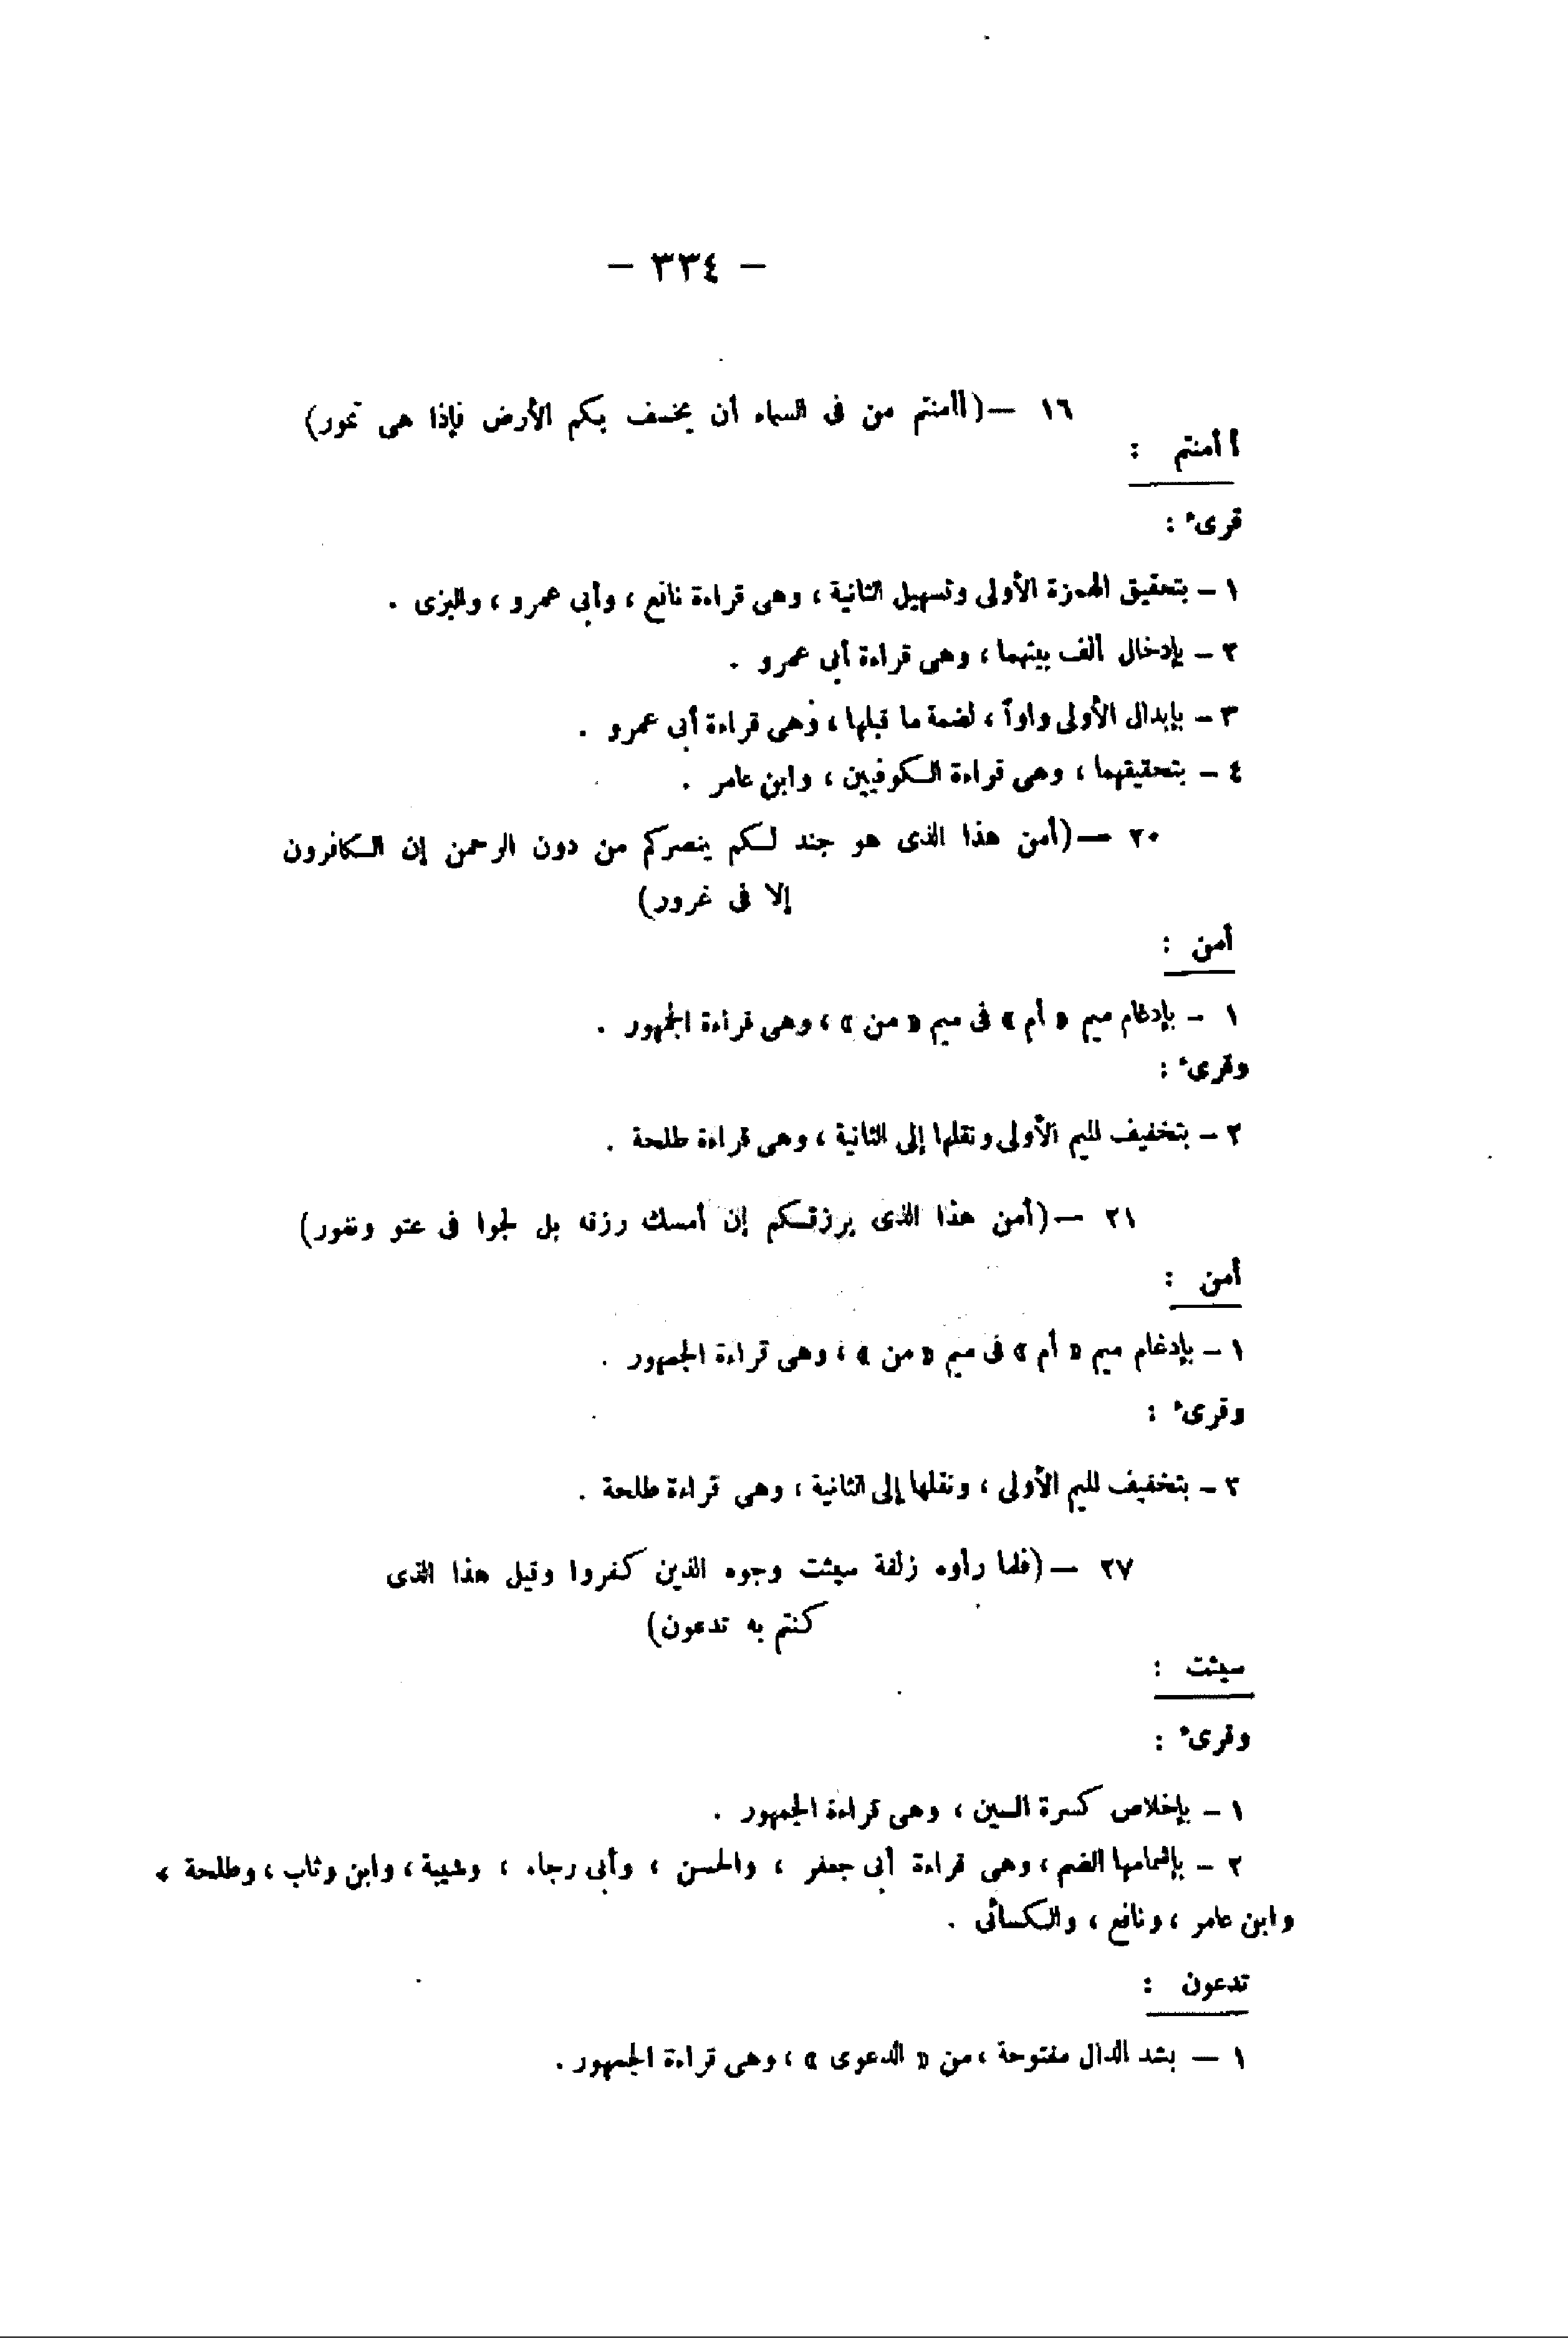 — ٣٣٤ —
١٦ — (أأمنتم من فى السماء أن يخسف بكم الأرض فإذا هى تمور)
أأمنتم :
قرىء :
١ – بتحقيق الهمزة الأولى وتسهيل الثانية ، وهى قراءة نافع ، وأبى عمرو ، والبزى .
٢ – بإدخال ألف بينهما ، وهى قراءة أبى عمرو .
٣ – بإبدال الأولى واواً ، لضمة ما قبلها ، وهى قراءة أبى عمرو .
٤ – بتحقيقهما ، وهى قراءة الكوفيين ، وابن عامر .
٢٠ — (أمن هذا الذى هو جند لكم ينصركم من دون الرحمن إن الكافرون
إلا فى غرور)
أمن :
١ – بإدغام ميم « أم » فى ميم « من » ، وهى قراءة الجمهور .
وقرىء :
٢ – بتخفيف الميم الأولى ونقلها إلى الثانية ، وهى قراءة طلحة .
٢١ — (أمن هذا الذى يرزقكم إن أمسك رزقه بل لجوا فى عتو ونفور)
أمن :
١ – بإدغام ميم « أم » فى ميم « من » ، وهى قراءة الجمهور .
وقرىء :
٢ – بتخفيف الميم الأولى ، ونقلها إلى الثانية ، وهى قراءة طلحة .
٢٧ — (فلما رأوه زلفة سيئت وجوه الذين كفروا وقيل هذا الذى
كنتم به تدعون)
سيئت :
وقرىء :
١ – بإخلاص كسرة السين ، وهى قراءة الجمهور .
٢ – بإشمامها الضم ، وهى قراءة أبى جعفر ، والحسن ، وأبى رجاء ، وشيبة ، وابن وثاب ، وطلحة ،
وابن عامر ، ونافع ، والكسائى .
تدعون :
١ — بشد الدال مفتوحة ، من « الدعوى » ، وهى قراءة الجمهور .